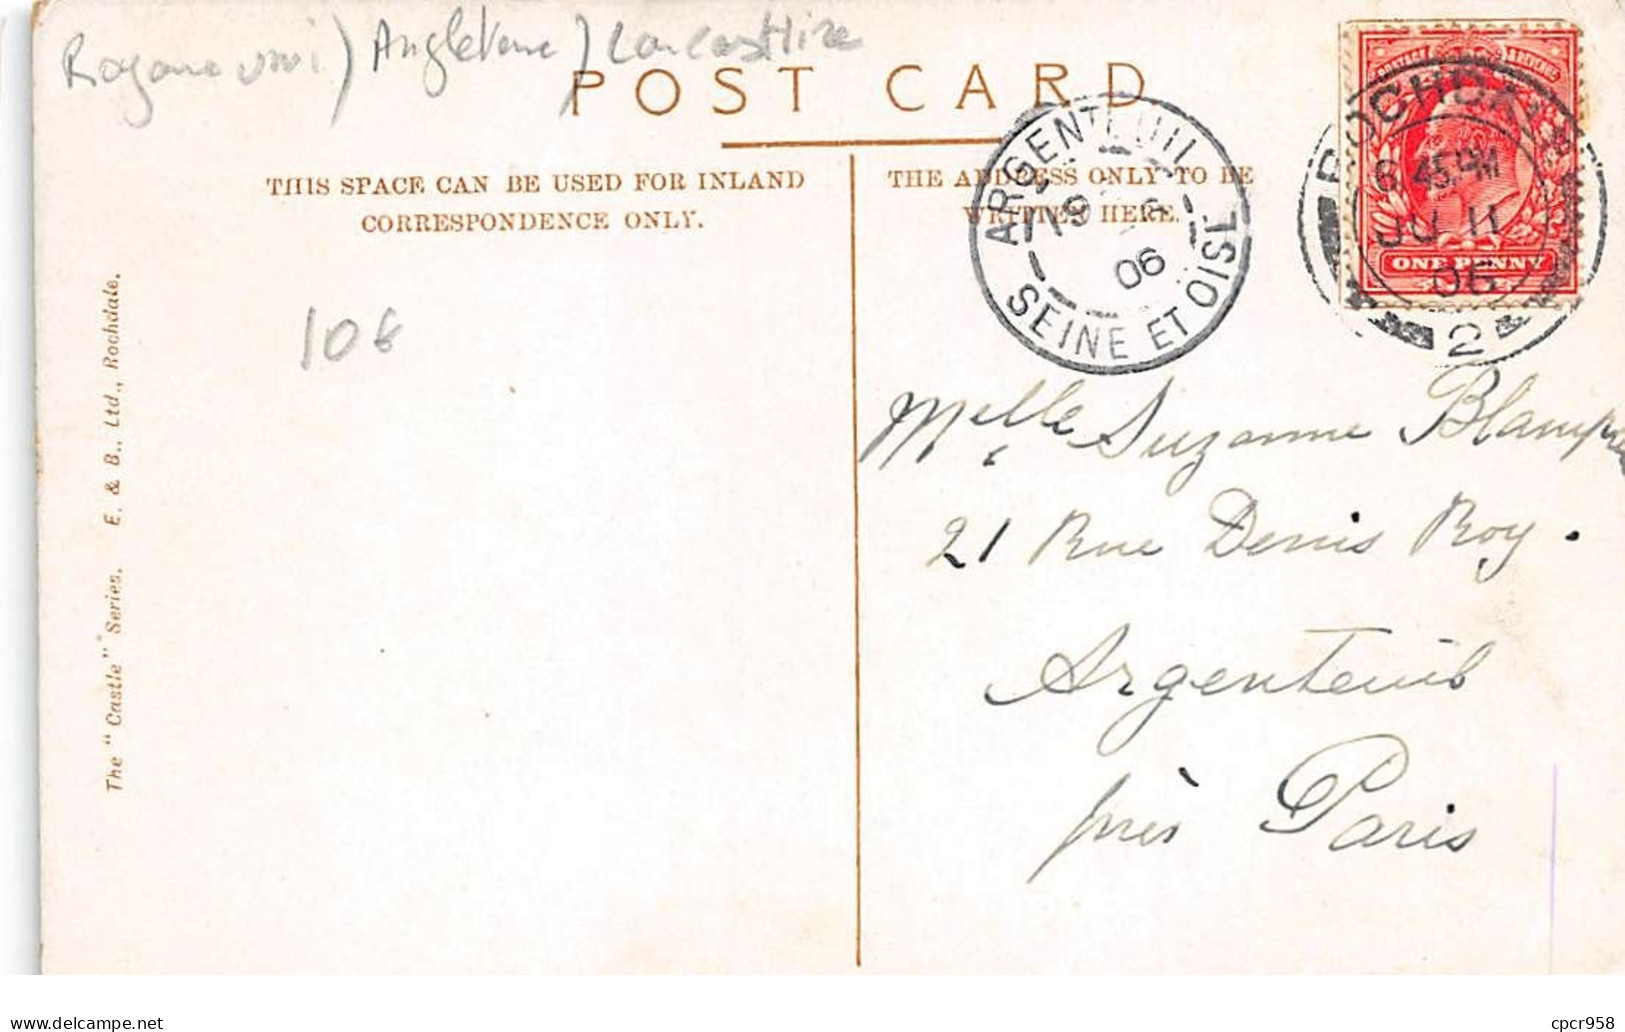 Royaume uni) Angleterre) Lancashire
POST CARD
THIS SPACE CAN BE USED FOR INLAND
CORRESPONDENCE ONLY.
THE ADDRESS ONLY TO BE
WRITTEN HERE.
ARGENTEUIL
06
SEINE ET OISE
POSTAGE & REVENUE
ROCHDALE
6.45 PM
JU 11
06
2
ONE PENNY
10€
The "Castle" Series. E. & B., Ltd., Rochdale.
Melle Suzanne
21 Rue Denis Roy.
Argenteuil
près Paris
delcampe.net
cpcr958